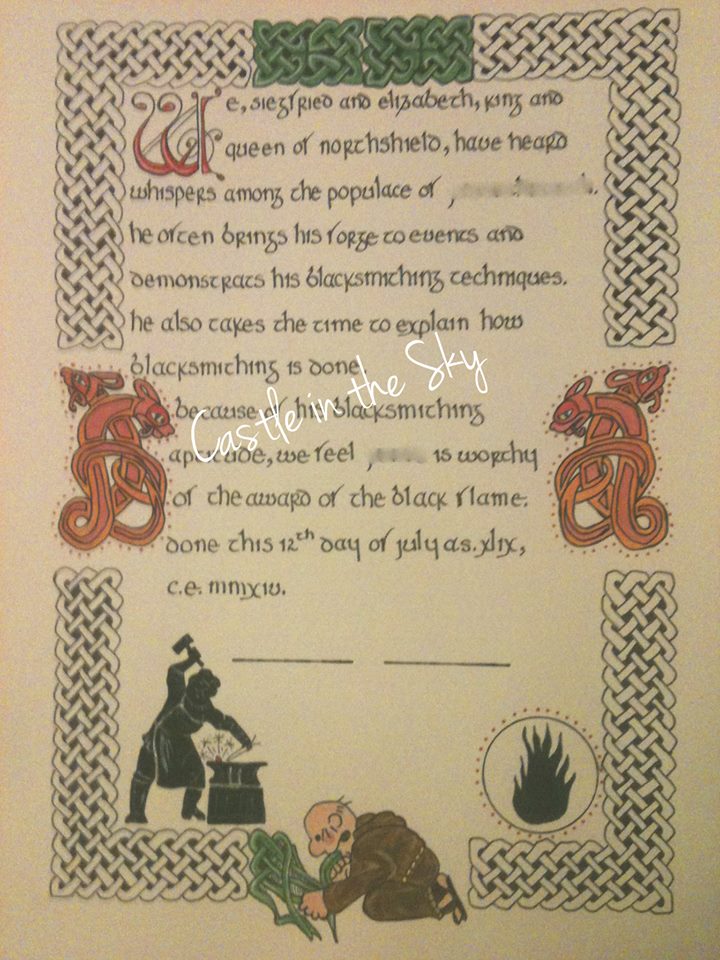 We, siegfried and elizabeth, king and
queen of northshield, have heard
whispers among the populace of
he often brings his forge to events and
demonstrats his blacksmithing techniques.
he also takes the time to explain how
blacksmithing is done.
because of his blacksmithing
aptitude, we feel is worthy
of the award of the black flame.
done this 12th day of july a.s. xlix,
c.e. mmxiv.
Castle in the Sky